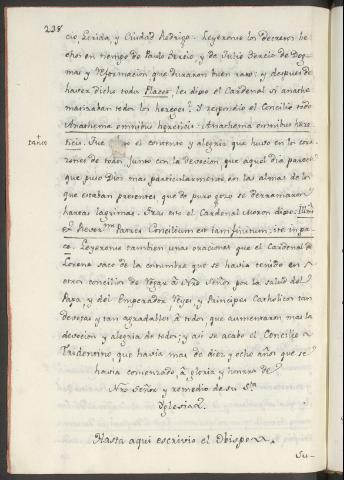 228
cio, Lerida, y Ciudad Rodrigo. Leyeronse los Decretos he
chos en tiempo de Paulo Tercio, y de Julio Tercio de Dog-
mas y Reformacion, que duraron bien rato; y despues de
haver dicho todos Placet, les dixo el Cardenal si anathe
matizaban todos los hereges? Y respondio el Concilio todo
Anathema omnibus hereticis: Anathema omnibus here
ticis. Fue el contento y alegria que huvo en los cora
zones de todos junto con la devocion, que aquel dia parece
que puso Dios mas particularmente en las almas de los
que estaban presentes que de puro gozo se derramaron
hartas lagrimas. Tras esto el Cardenal Moron dixo: Illmi
et Rever.mi Patres Concilium est iam finitum: ite in pa-
ce. Leyeronse tambien unas oraciones que el Cardenal de
Lorena saco de la costumbre que se havia tenido en
otros concilios de Rogar à Nro Señor por la salud del
Papa, y del Emperador Reyes, y Principes Catholicos tan
devotas y tan agradables à todos, que aumentaron mas la
devocion y alegria de todos; y asi se acabo el Concilio
Tridentino, que havia mas de diez y ocho años que se
havia comenzado, à gloria y honrra de
Nro Señor y remedio de su Sta
Yglesia.
Hasta aqui escrivio el Obispo.
Su-